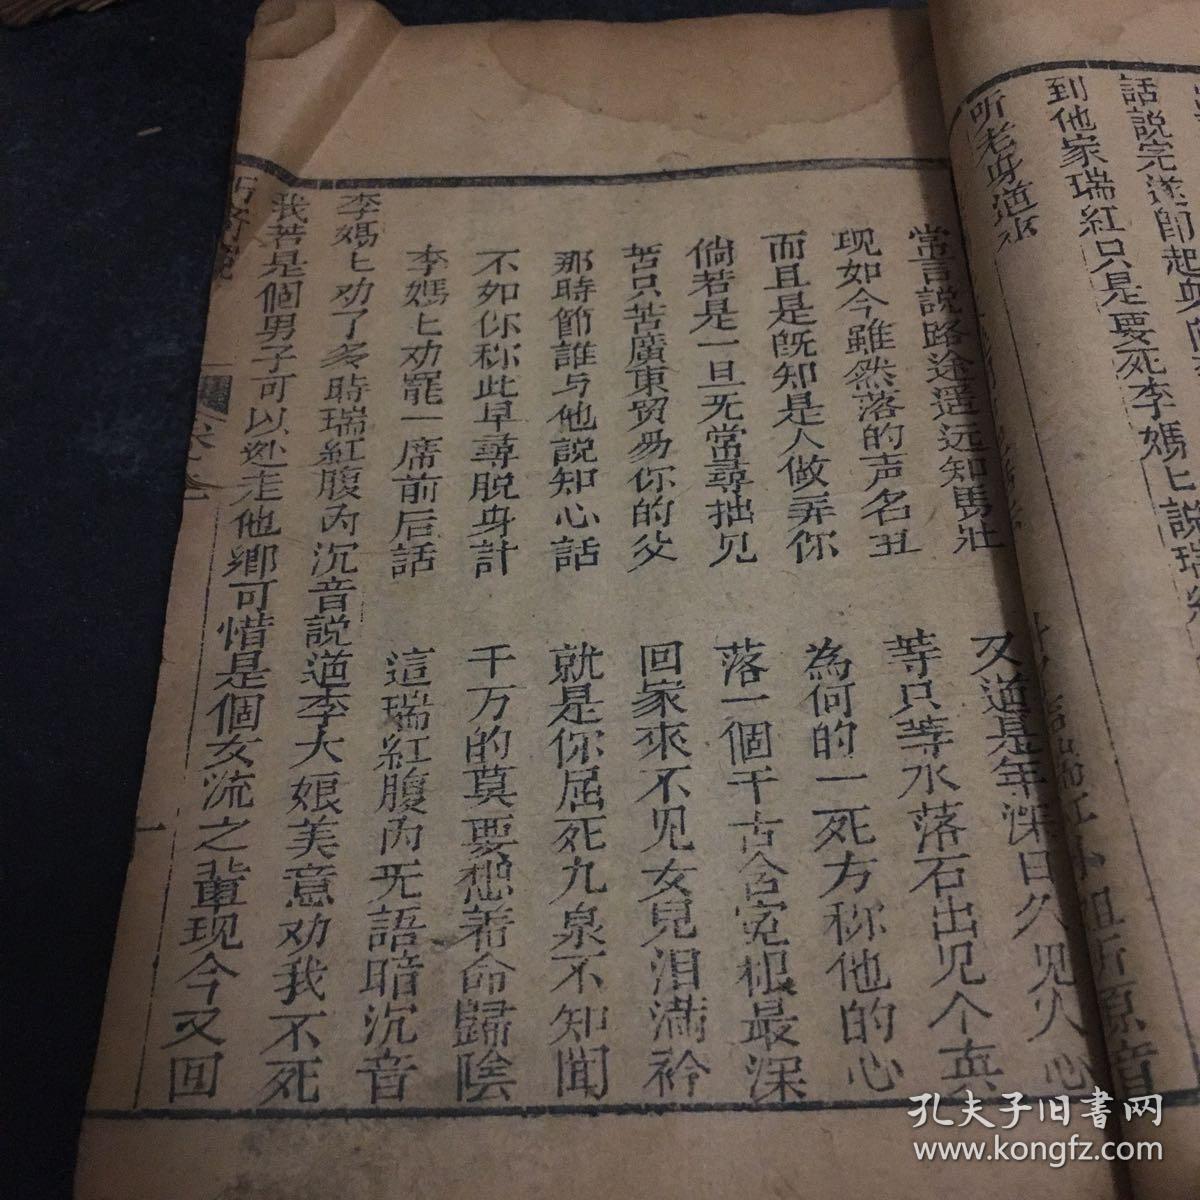 話說完遂即起身
到他家瑞紅只是要死李媽匕說瑞紅
听老身道來
常言說路途遥远知馬壯 又道是年深日久見人心
现如今雖然落的声名丑 等只等水落石出见个真
而且是旣知是人做弄你 為何的一死方称他的心
倘若是一旦无常尋拙见 落一個千古含冤根最深
苦只苦廣東贸易你的父 回家來不见女兒泪满衿
那時節誰与他説知心話 就是你屈死九泉不知聞
不如你称此早尋脱身計 千万的莫要想着命歸陰
李媽匕劝罷一席前后話 這瑞紅腹内无語暗沉音
李媽匕劝了多時瑞紅腹内沉音説道李大娘美意劝我不死
我若是個男子可以逃走他鄉可惜是個女流之輩现今又回
孔夫子旧書网
www.kongfz.com